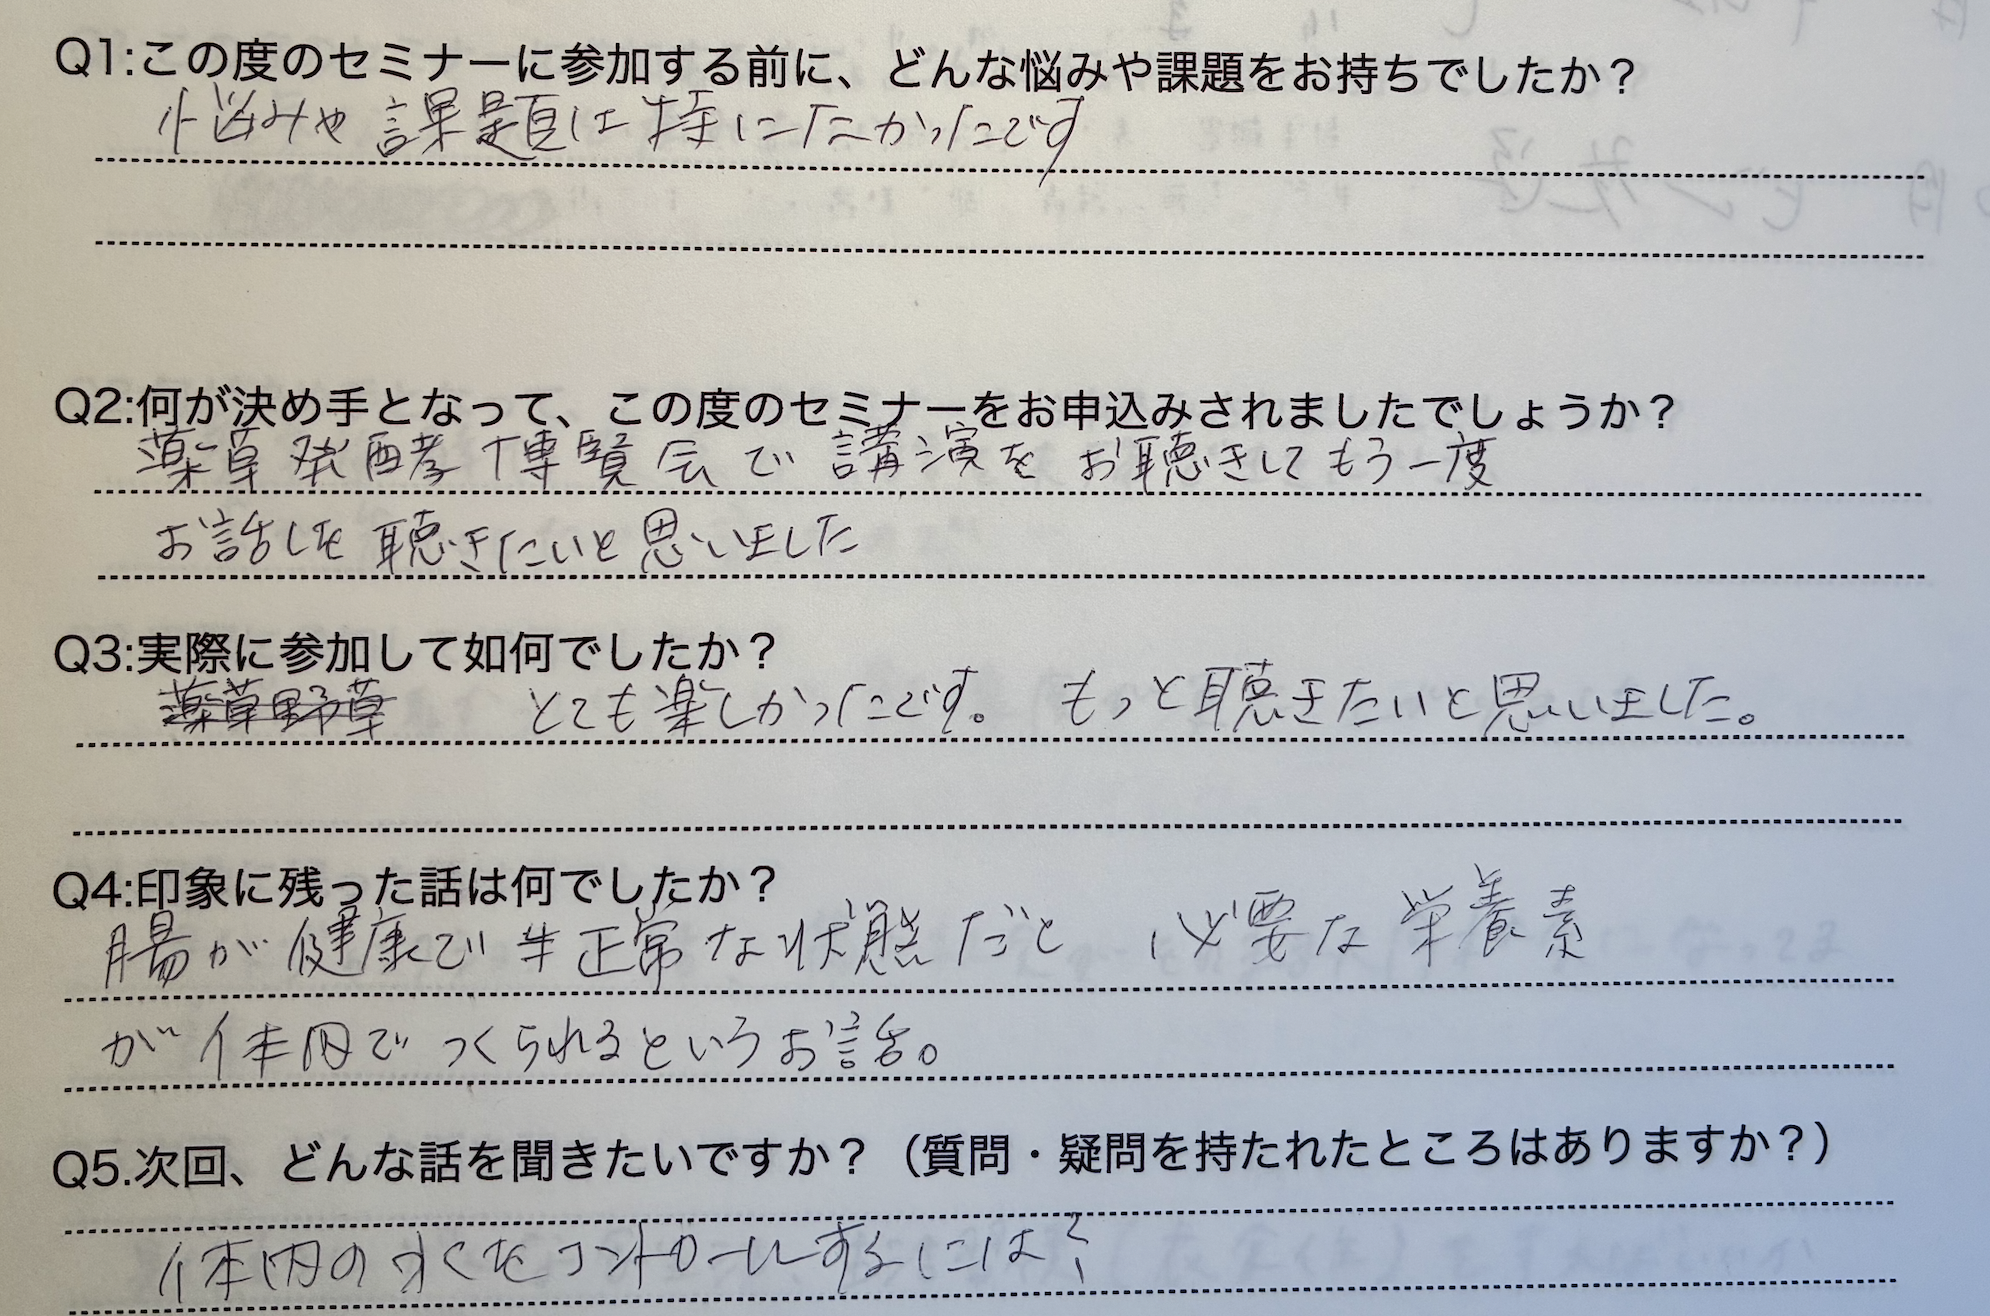 Q1:この度のセミナーに参加する前に、どんな悩みや課題をお持ちでしたか？
悩みや課題は特になかったです
Q2:何が決め手となって、この度のセミナーをお申込みされましたでしょうか？
薬草発酵博覧会で講演をお聴きしてもう一度
お話しを聴きたいと思いました
Q3:実際に参加して如何でしたか？
薬草野草 とても楽しかったです。もっと聴きたいと思いました。
Q4:印象に残った話は何でしたか？
腸が健康で正常な状態だと 必要な栄養素
が体内でつくられるというお話。
Q5.次回、どんな話を聞きたいですか？（質問・疑問を持たれたところはありますか？）
体内の をコントロールするには？